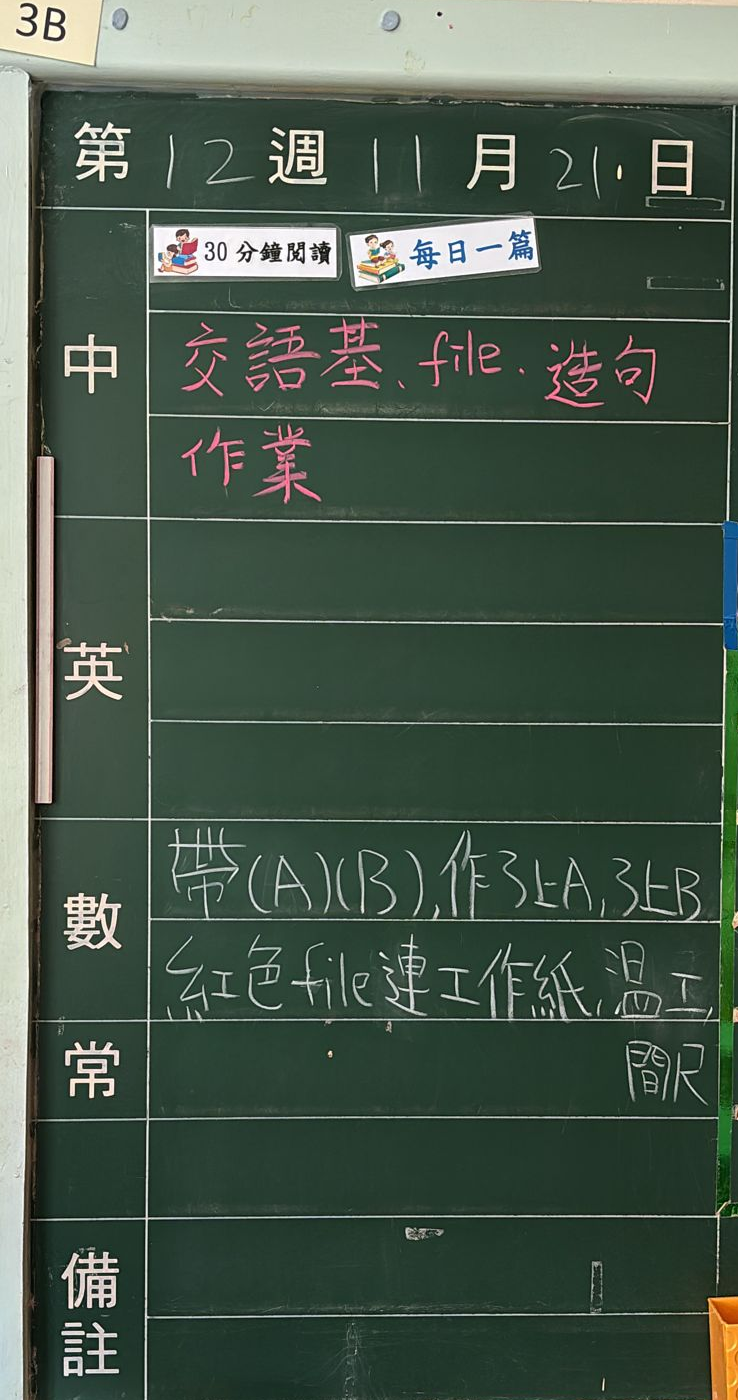 3B
第12週11月21日
30分鐘閱讀 每日一篇
中
交語基、file、造句
作業
英
數
帶(A)(B),作3上A,3上B
紅色file連工作紙,温工,
常
間尺
備註